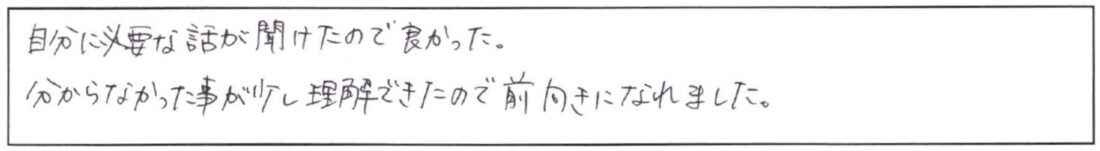 自分に必要な話が聞けたので良かった。
分からなかった事が少し理解できたので前向きになれました。